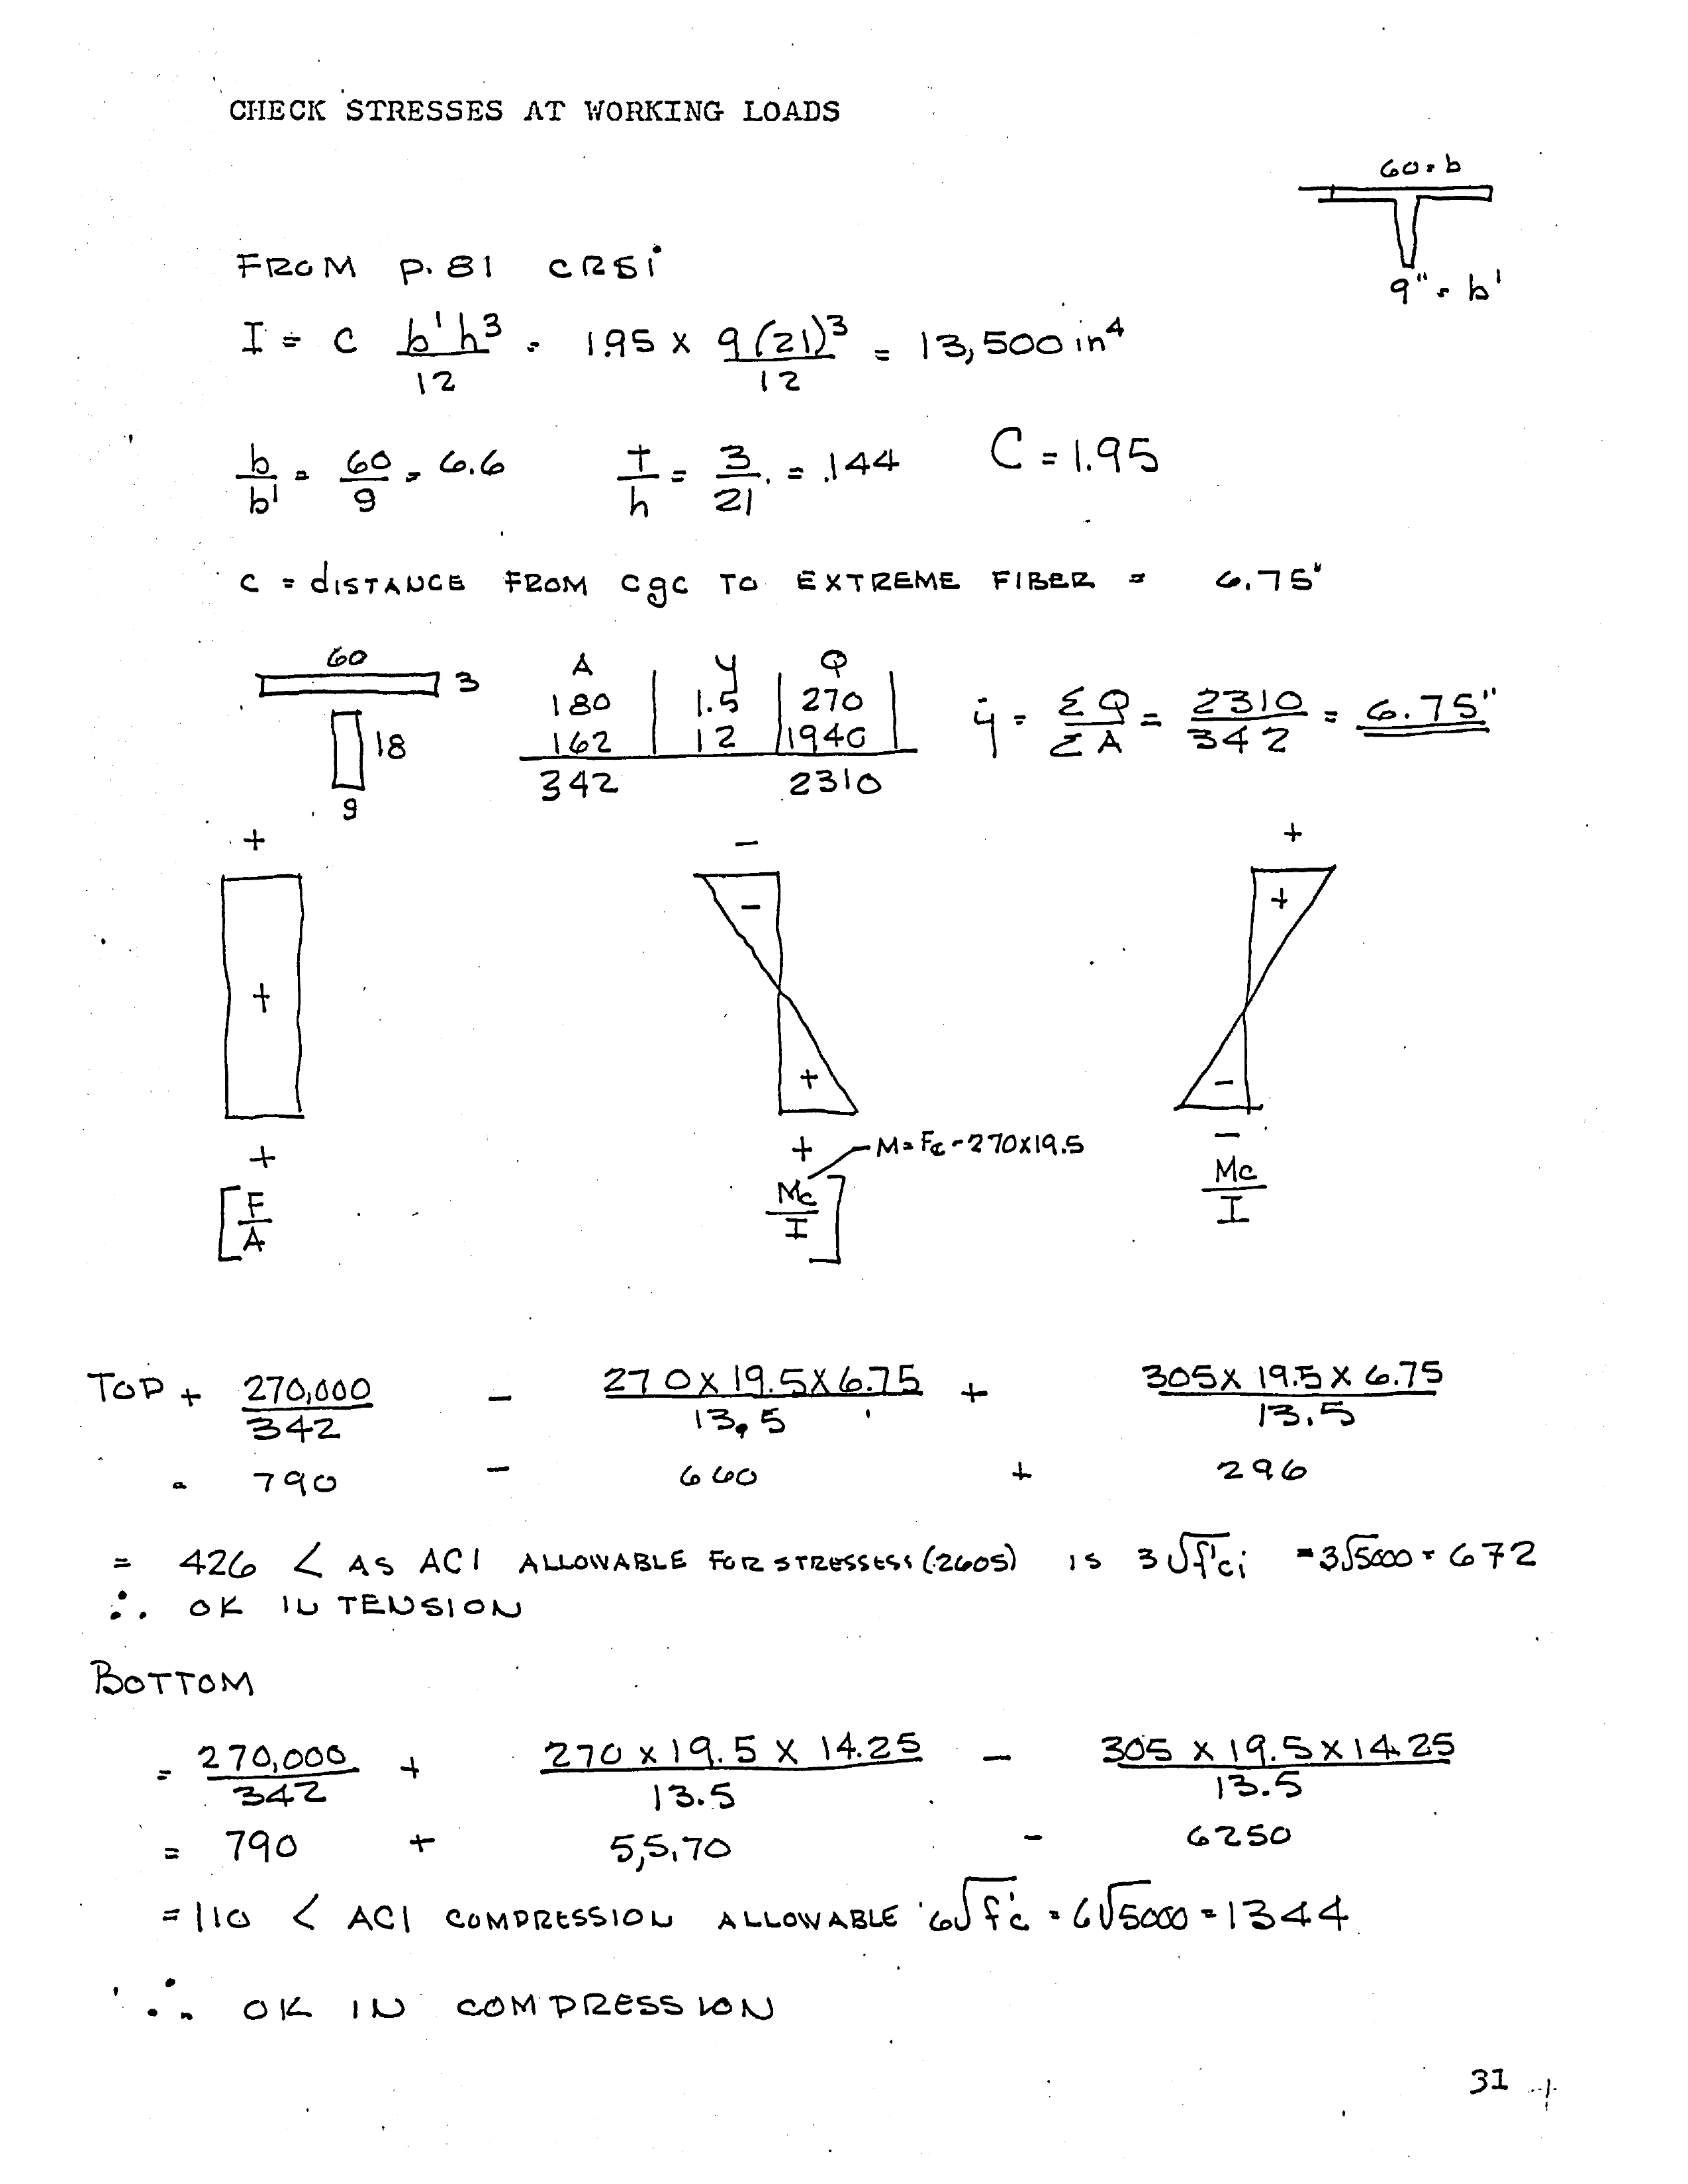 CHECK STRESSES AT WORKING LOADS
60 = b
9" = b'
FROM P. 81 CRSI
I = C b'h³/12 = 1.95 x 9(21)³/12 = 13,500 in⁴
b/b' = 60/9 = 6.6 t/h = 3/21 = .144 C = 1.95
C = DISTANCE FROM cgc TO EXTREME FIBER = 6.75"
60
3
18
9
A y Q
180 1.5 270
162 12 1940
342 2310
ȳ = ΣQ/ΣA = 2310/342 = 6.75"
+ - +
- +
+
+ -
+ + -
M = Fe = 270x19.5
[F/A Mc/I] Mc/I
TOP + 270,000/342 - 270 x 19.5 x 6.75/13.5 + 305 x 19.5 x 6.75/13.5
= 790 - 660 + 296
= 426 < AS ACI ALLOWABLE FOR STRESSESS (.2605) IS 3√f'ci = 3√5000 = 672
∴ OK IN TENSION
BOTTOM
= 270,000/342 + 270 x 19.5 x 14.25/13.5 - 305 x 19.5 x 14.25/13.5
= 790 + 5,5,70 - 6250
= 110 < ACI COMPRESSION ALLOWABLE 6√f'c = 6√5000 = 1344
∴ OK IN COMPRESSION
31